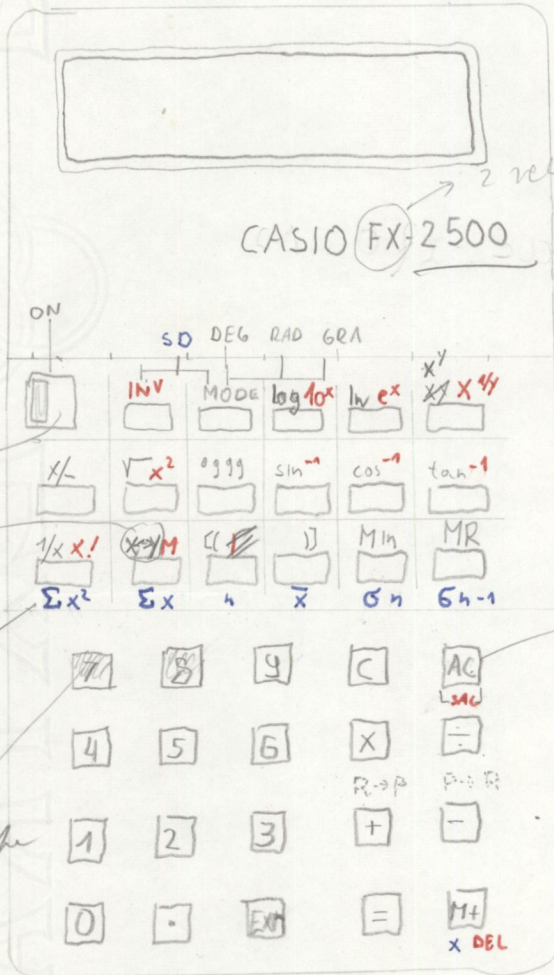 2
CASIO FX-2500
ON
SD DEG RAD GRA
INV MODE log 10ˣ ln eˣ xʸ x¹/ʸ
√ x² sin⁻¹ cos⁻¹ tan⁻¹
1/x x! x↔y M [( )] Min MR
Σx² Σx n x̄ σn σn-1
7 8 9 C AC
SAC
4 5 6 × ÷
R→P P→R
1 2 3 + −
0 · EXP = M+
x DEL